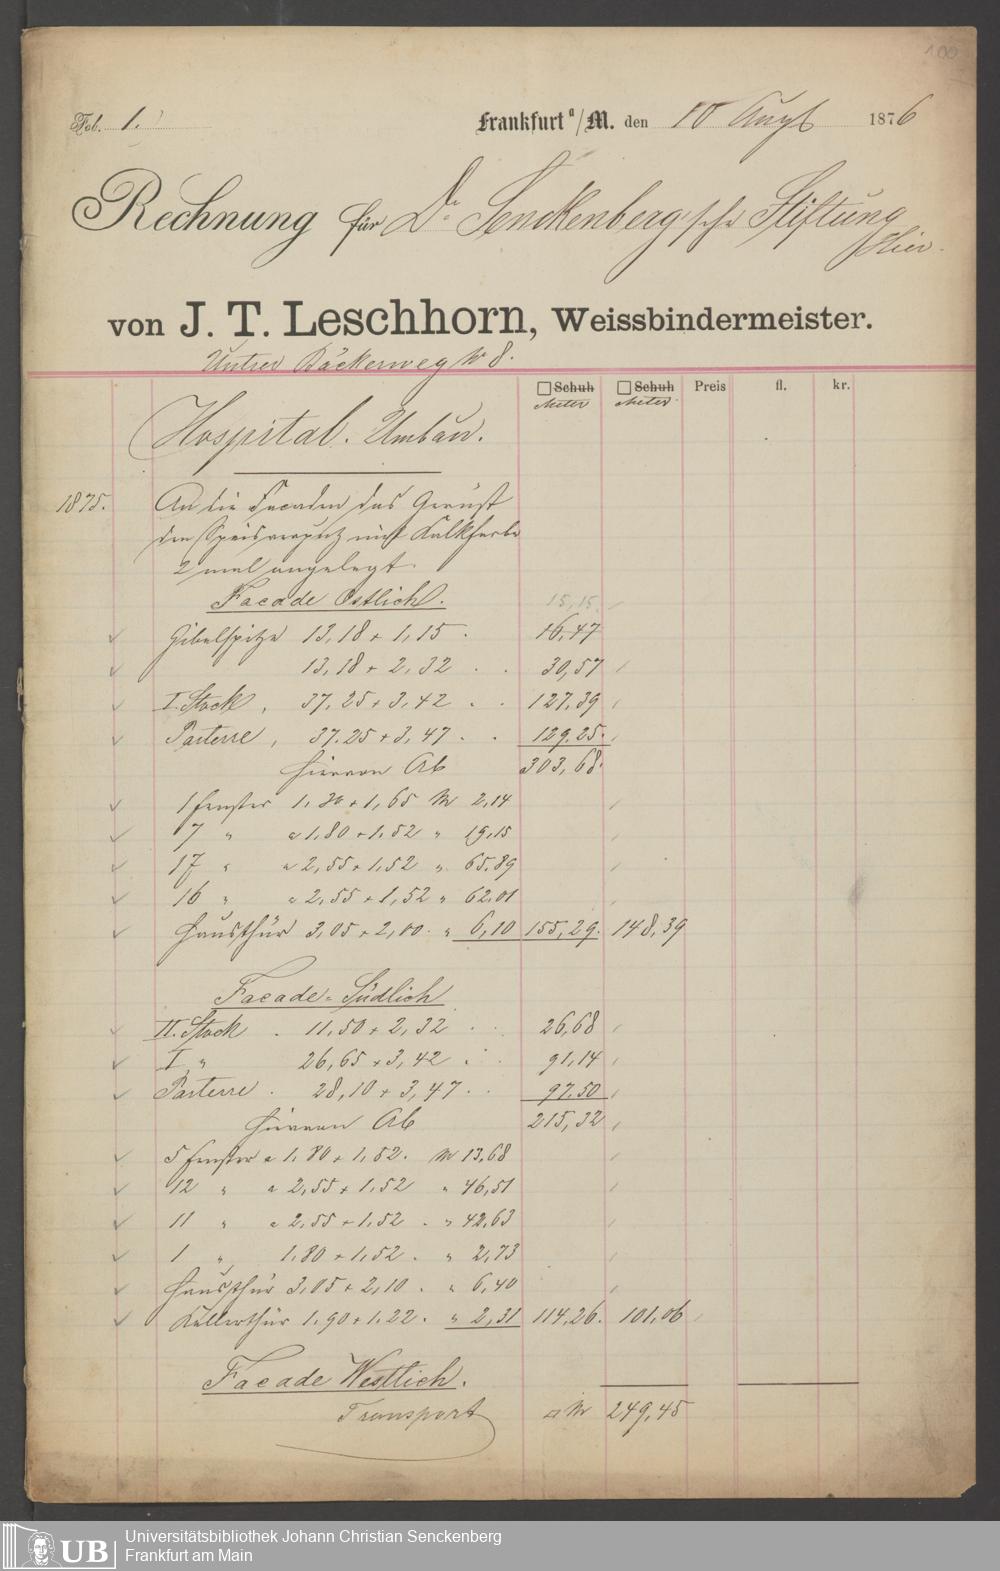 100
Fol. 1.
Frankfurt a/M. den 10 Augt 1876
Rechnung für Dr. Senckenberg'sche Stiftung
Hier.
von J. T. Leschhorn, Weissbindermeister.
Untrer Bäckerweg No 8.
□ Schuh □ Schuh Preis fl. kr.
Meter Meter
Hospital. Umbau.
1875. An die Facaden das Gerüst
den Speisverputz mit Kalkfarbe
2 mal angelegt.
Facade Ostlich. 15,15.
Gibelspitze 13,18 + 1,15 . 16,47
13,18 + 2,32 . . 30,57
I. Stock , 37,25 + 3,42 . . 127,39
Parterre , 37.25 + 3,47 . . 129.25.
Hiervon Ab 303,68.
1 Fenster 1,30 + 1,65 M 2,14
7 " a 1,80 + 1,52 " 19,15
17 " a 2,55 + 1,52 " 65.89
16 " a 2,55 + 1,52 " 62.01
Hausthür 3,05 + 2,00 . " 6,10 155,29. 148,39
Facade - Südlich
II. Stock . 11,50 + 2,32 . . 26,68
I " 26,65 + 3,42 . . 91,14
Parterre . 28,10 + 3,47 . . 97.50
Hiervon Ab 215,32
5 Fenster a 1,80 + 1,52. M 13,68
12 " a 2,55 + 1,52 " 46,51
11 " a 2,55 + 1,52 . " 42,63
1 " 1,80 + 1,52 . " 2,73
Hausthür 3,05 + 2,10 . " 6,40
Kellerthür 1,90 + 1,22 . " 2,31 114,26. 101,06
Facade Westlich.
Transport □ M 249,45
UB
Universitätsbibliothek Johann Christian Senckenberg
Frankfurt am Main